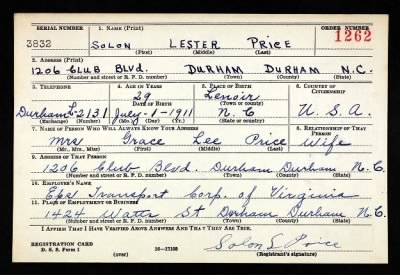 SERIAL NUMBER 1. NAME (Print) ORDER NUMBER
3832 SOLON LESTER PRICE 1262
(First) (Middle) (Last)
2. ADDRESS (Print)
1206 CLUB BLVD. DURHAM DURHAM N.C.
(Number and street or R. F. D. number) (Town) (County) (State)
3. TELEPHONE 4. AGE IN YEARS 5. PLACE OF BIRTH 6. COUNTRY OF CITIZENSHIP
29 Lenoir
DATE OF BIRTH (Town or county)
Durham L-2131 July-1-1911 N.C U.S.A.
(Exchange) (Number) (Mo.) (Day) (Yr.) (State or country)
7. NAME OF PERSON WHO WILL ALWAYS KNOW YOUR ADDRESS 8. RELATIONSHIP OF THAT PERSON
Mrs Grace Lee Price Wife
(Mr., Mrs., Miss) (First) (Middle) (Last)
9. ADDRESS OF THAT PERSON
1206 Club Blvd. Durham Durham N.C.
(Number and street or R. F. D. number) (Town) (County) (State)
10. EMPLOYER'S NAME
Transport Corp. of Virginia
11. PLACE OF EMPLOYMENT OR BUSINESS
1424 Watts St Durham Durham N.C.
(Number and street or R. F. D. number) (Town) (County) (State)
I AFFIRM THAT I HAVE VERIFIED ABOVE ANSWERS AND THAT THEY ARE TRUE.
REGISTRATION CARD
D. S. S. Form 1 16-17105 Solon L Price
(over) (Registrant's signature)